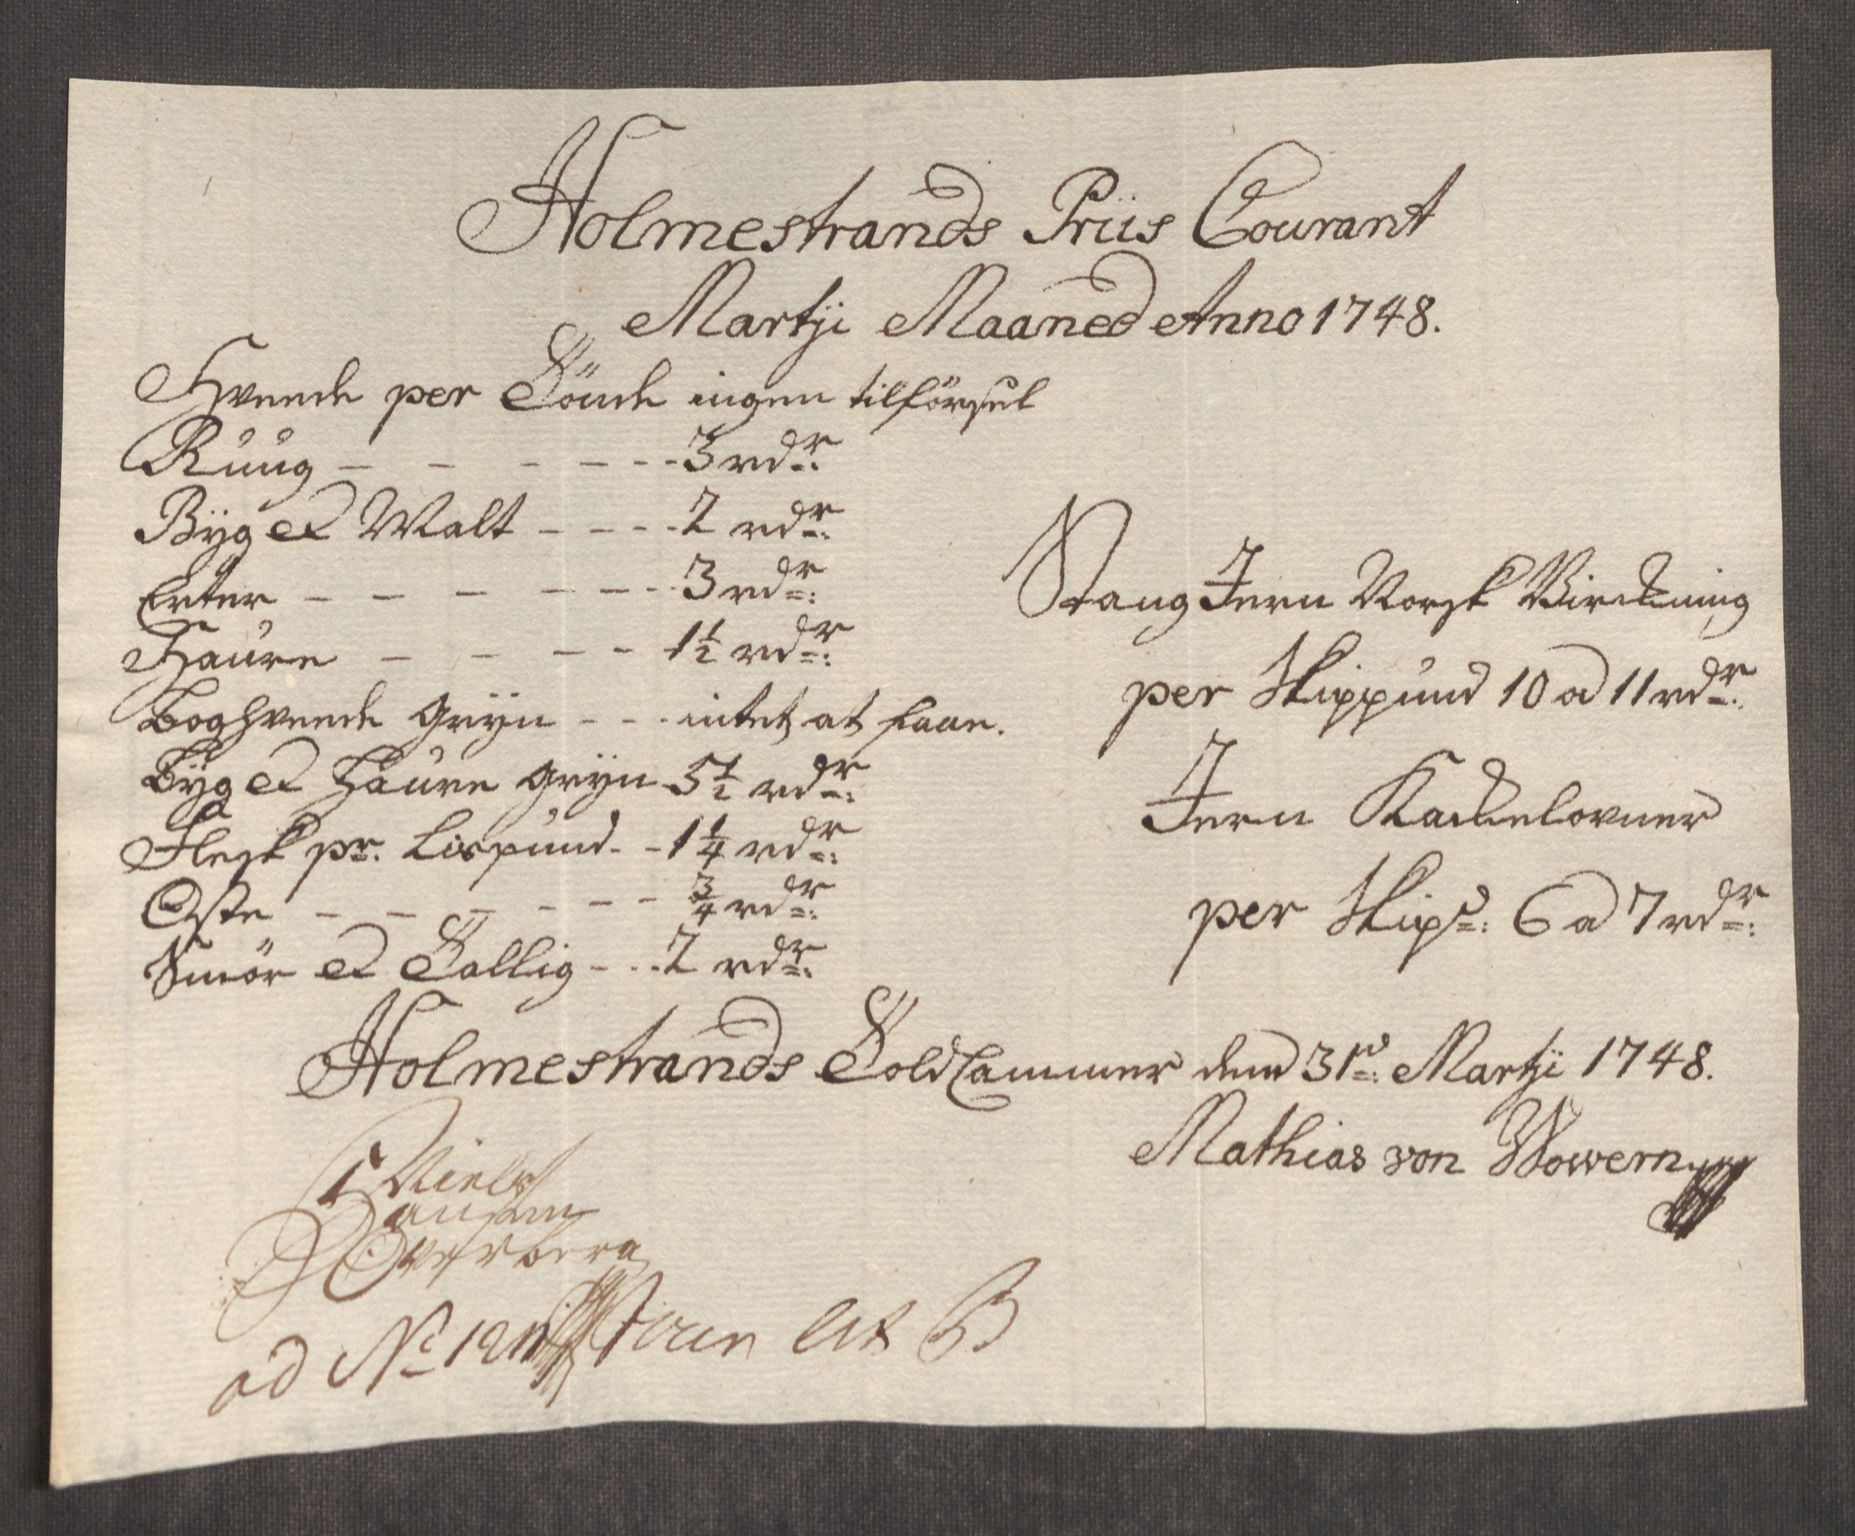 Holmestrands Priis Courant
Martji Maaned Anno 1748.
Hveede per Tönde ingen tilförsel
Ruug - - - - - - - 3 rdr:
Byg et Malt - - - - 2 rdr:
Erter - - - - - - - 3 rdr:
Haure - - - - 1½ rdr:
Boghveede gryn - - - intet at faae.
Byg et Haure gryn 5½ rdr:
Flesk pr. Lispund - - 1¼ rdr:
Oste - - - - - - - ¾ rdr:
Smör et Tallig - - - 2 rdr:
Stang Jern Norsk Virckning
per Skippund 10 a 11 rdr:
Jern Kackelovner
per Skipd: 6 a 7 rdr:
Holmestrands Toldcammer dend 31d: Martji 1748.
Mathias von Wowern
Niels
Hansen
ad No
Lit B